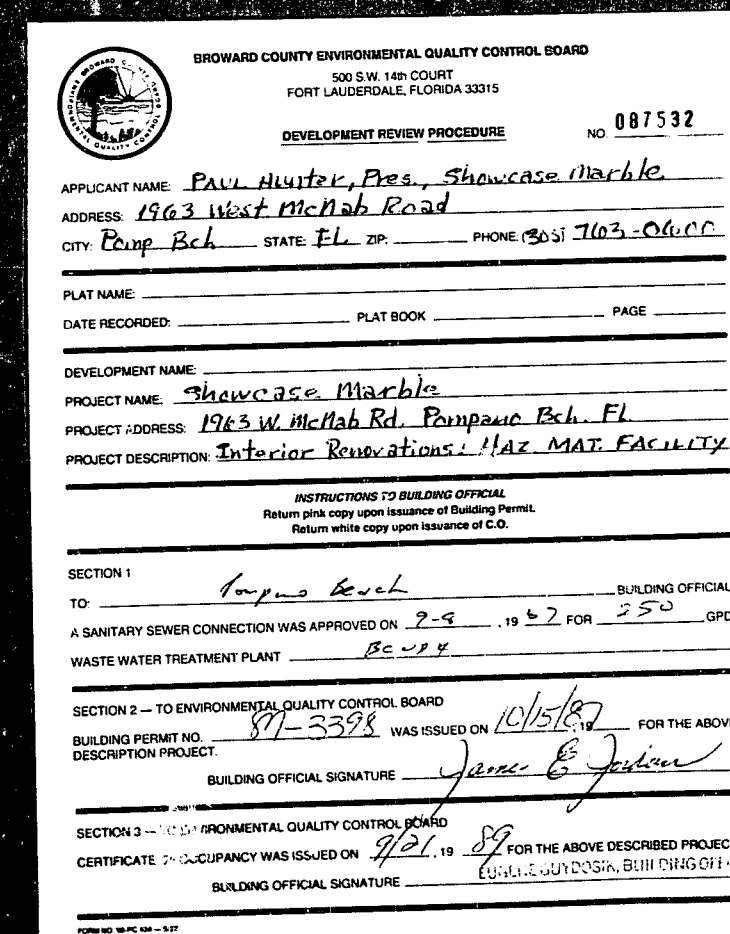 BROWARD COUNTY ENVIRONMENTAL QUALITY CONTROL BOARD
500 S.W. 14th COURT
FORT LAUDERDALE, FLORIDA 33315
DEVELOPMENT REVIEW PROCEDURE NO. 087532
APPLICANT NAME: PAUL Hunter, Pres., Showcase Marble
ADDRESS: 1963 West McNab Road
CITY: Pomp Bch STATE: FL ZIP: PHONE: (305)
PLAT NAME:
DATE RECORDED: PLAT BOOK PAGE
DEVELOPMENT NAME:
PROJECT NAME: Showcase Marble
PROJECT ADDRESS: 1963 W. McNab Rd. Pompano Bch. FL
PROJECT DESCRIPTION: Interior Renovations: HAZ. MAT. FACILITY
INSTRUCTIONS TO BUILDING OFFICIAL
Return pink copy upon issuance of Building Permit.
Return white copy upon issuance of C.O.
SECTION 1
TO: Pompano Beach BUILDING OFFICIAL
A SANITARY SEWER CONNECTION WAS APPROVED ON 9-8, 19 87 FOR 250 GPD
WASTE WATER TREATMENT PLANT
SECTION 2 — TO ENVIRONMENTAL QUALITY CONTROL BOARD
BUILDING PERMIT NO. M-3398 WAS ISSUED ON 10/15/87, 19 FOR THE ABOV
DESCRIPTION PROJECT.
BUILDING OFFICIAL SIGNATURE James E
SECTION 3 — QUALITY CONTROL BOARD
CERTIFICATE OCCUPANCY WAS ISSUED ON 9/21, 19 89 FOR THE ABOVE DESCRIBED PROJEC
EUGENE GUYDOSIK, BUILDING OFFI
BUILDING OFFICIAL SIGNATURE